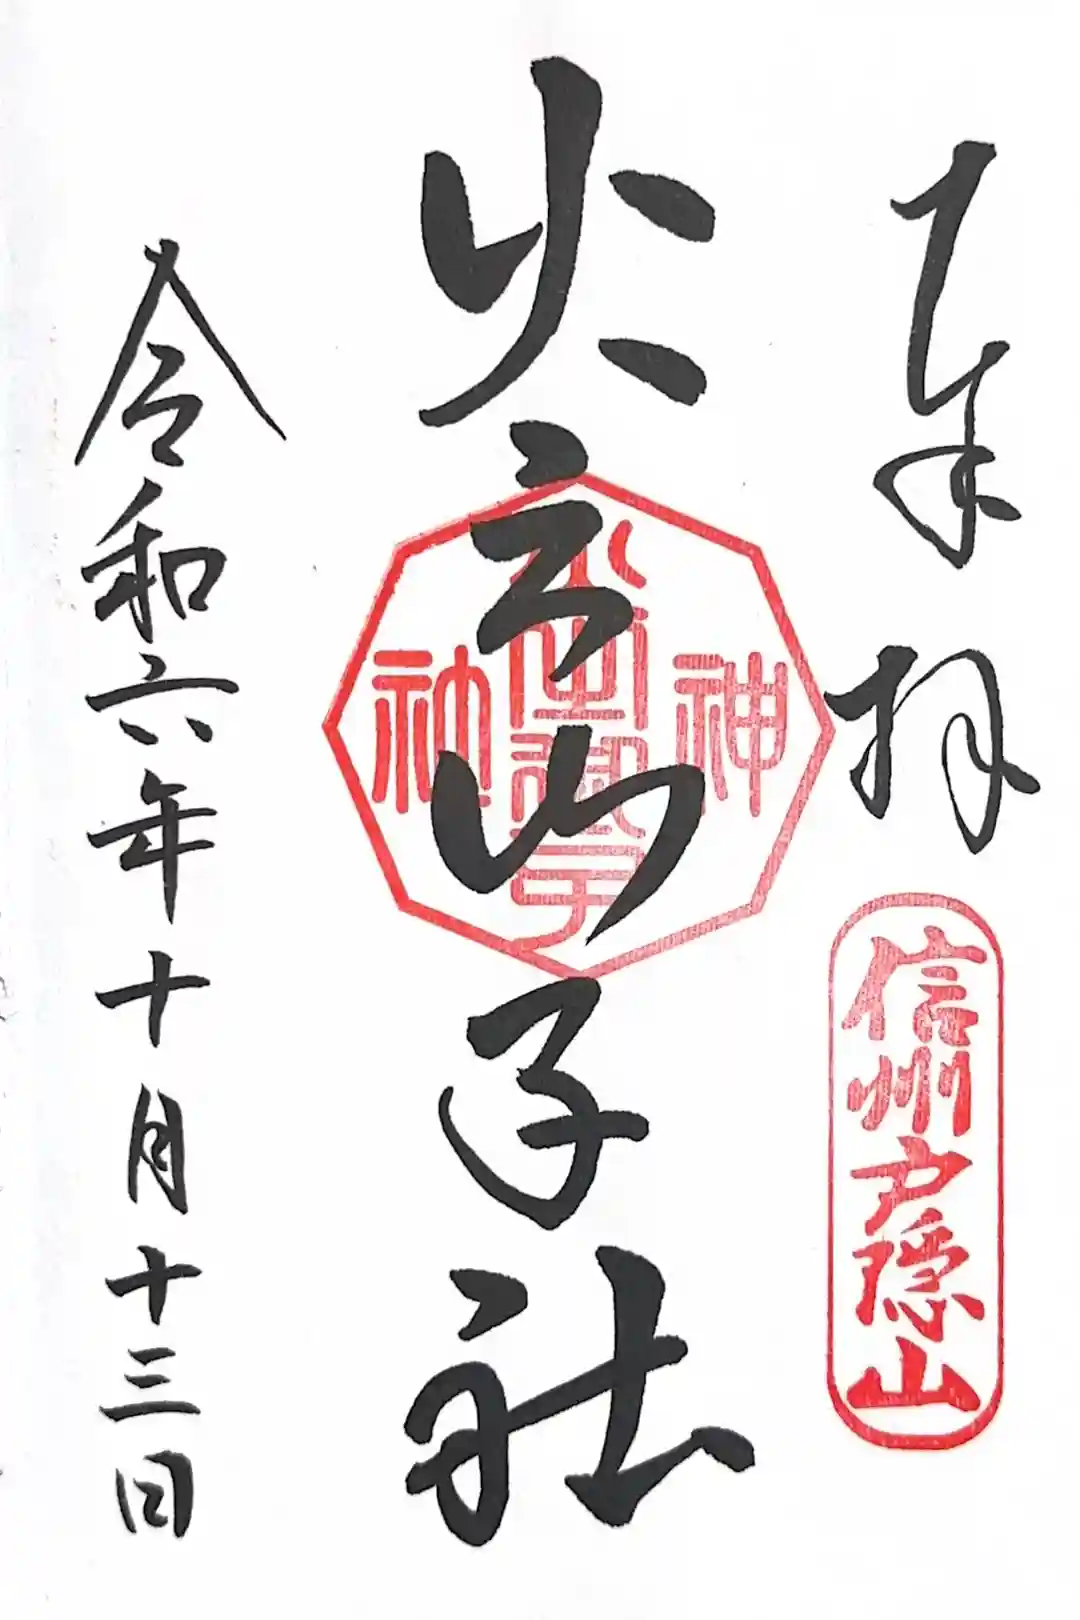 奉拝
信州戸隠山
火之御子社
火之御子神社
令和六年十月十三日